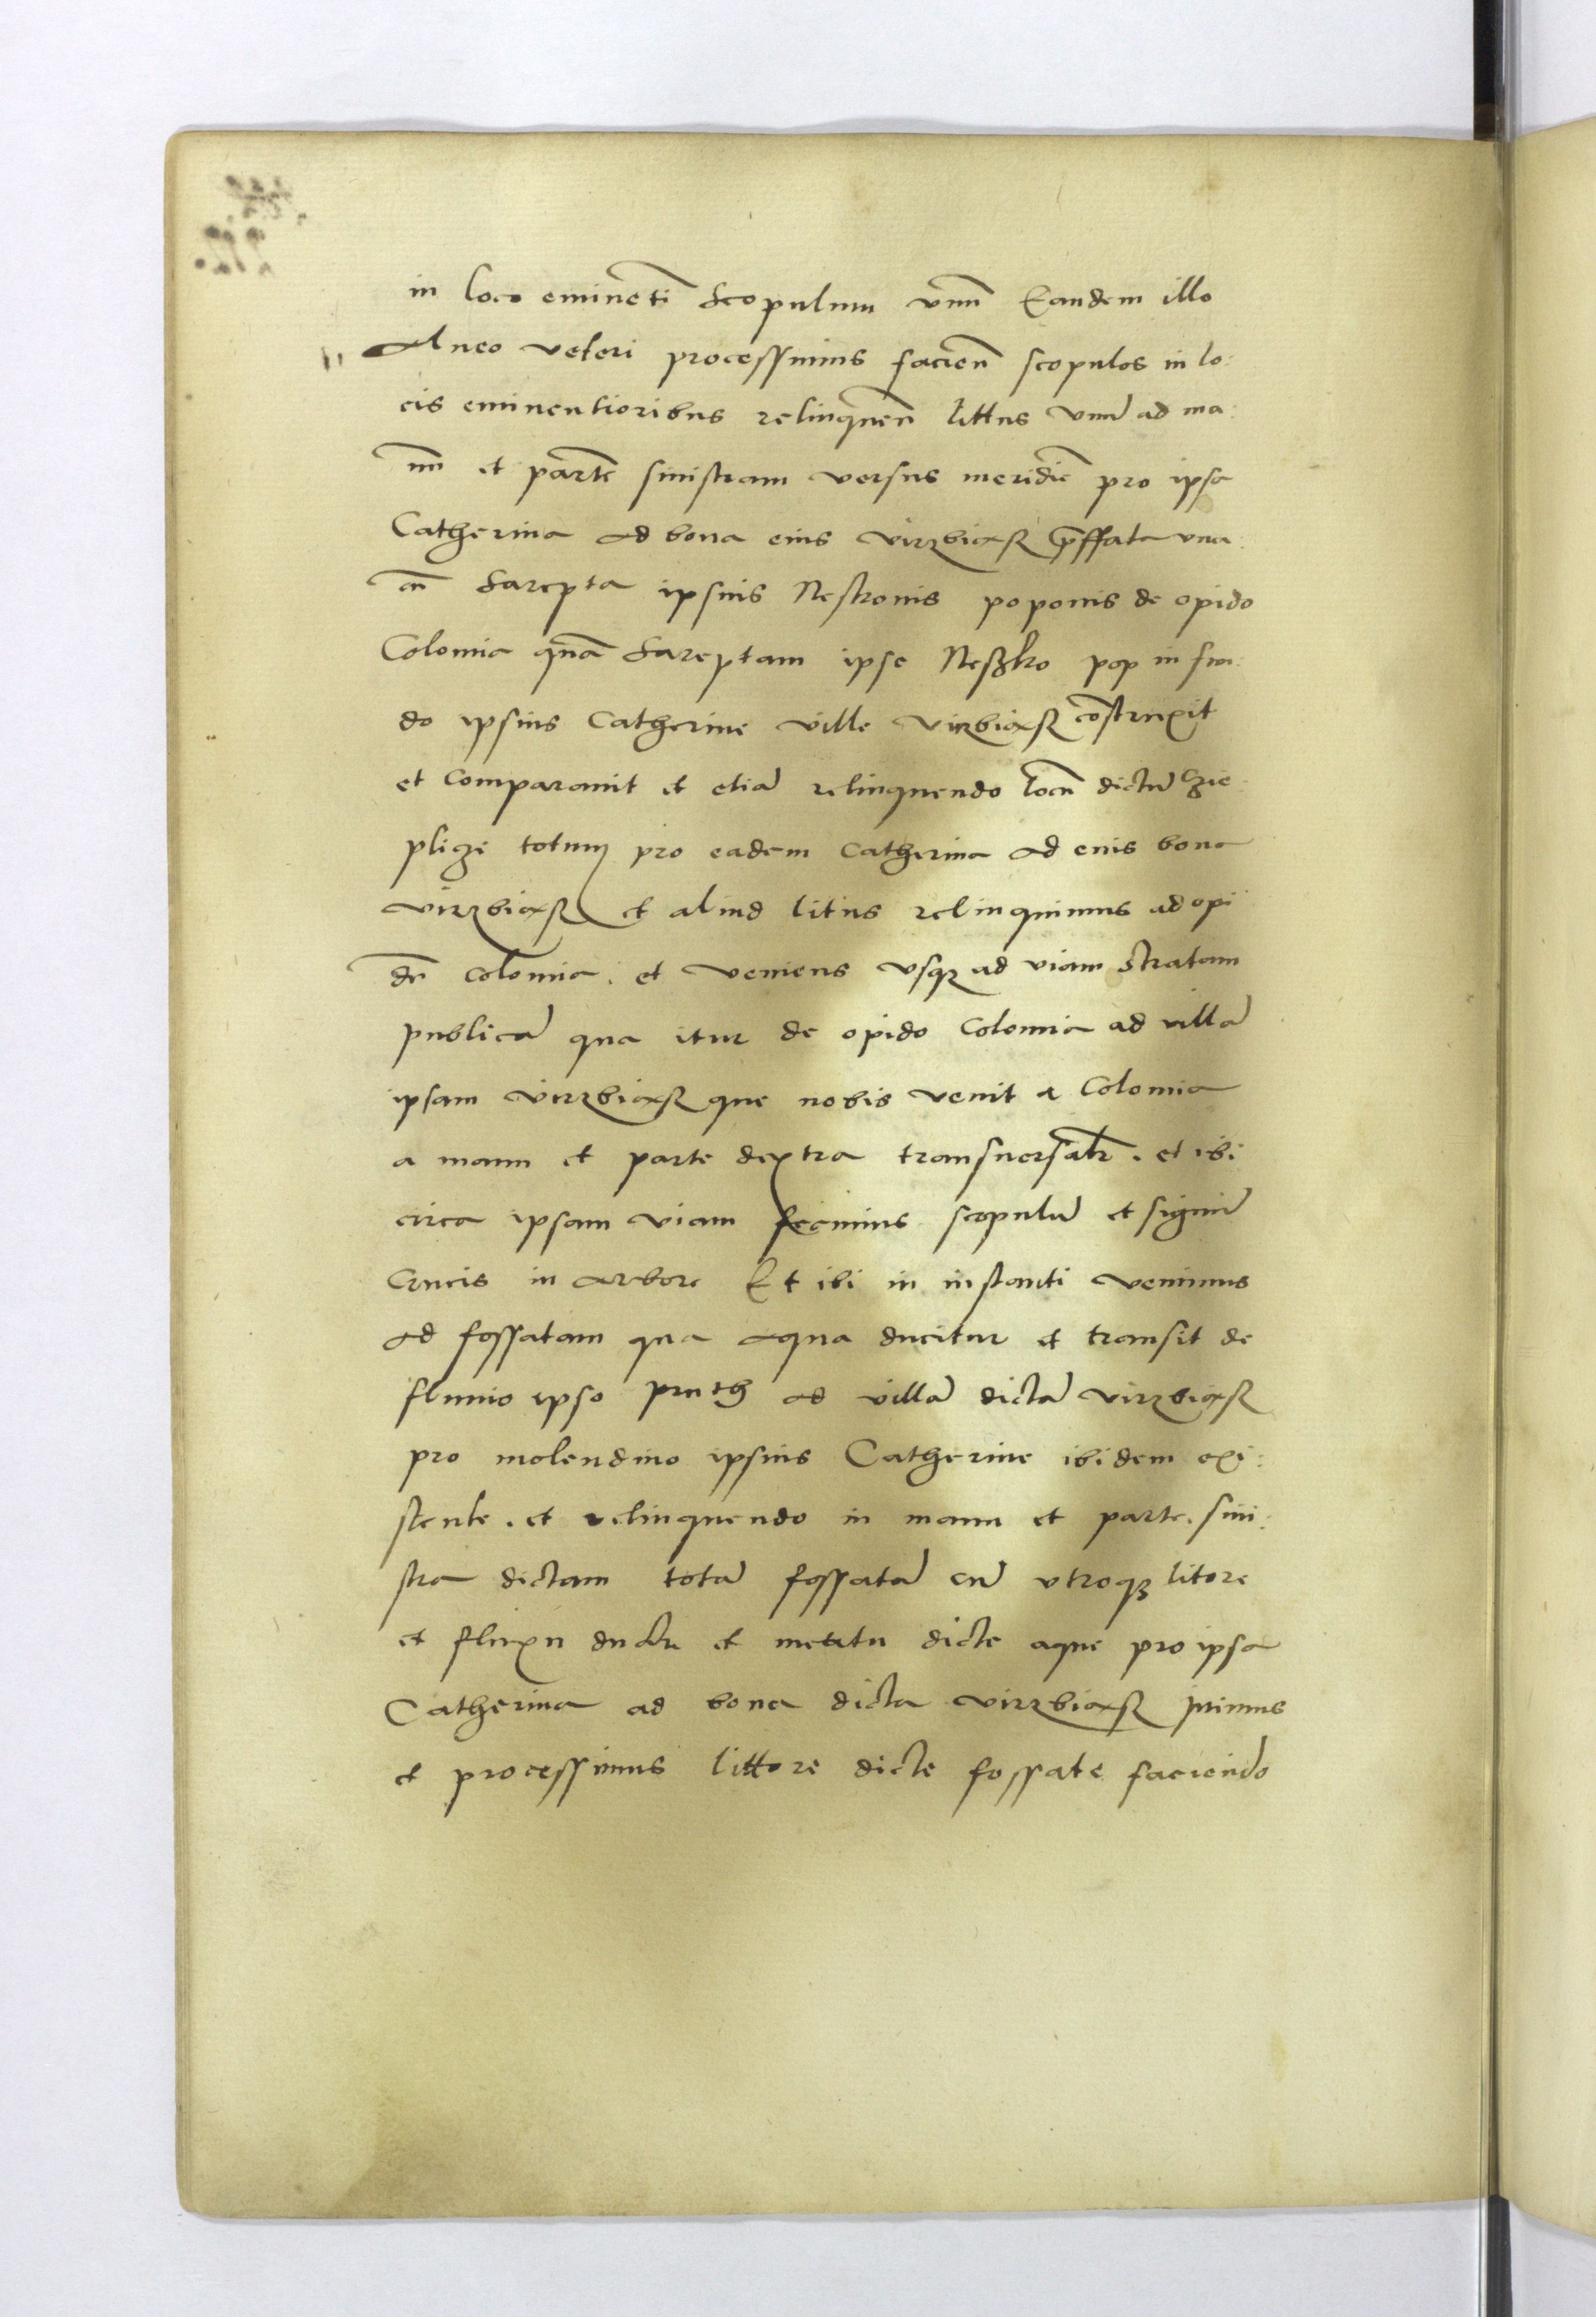 in loco eminēti Scopulum vnū Eandem illo
Alueo veteri processimus facien̄ scopulos in lo:
cis eminentioribus relinquen̄ littus vnū ad ma:
nū et partē sinistram versus meridiē pro ipsa
Catherina ad bona eius virzbiąsz p̄ffata vna:
cū Sarepta ipsius Nestronis poponis de opido
Colomia quā Sareptam ipse Neszko pop in fun:
do ipsius Catherine ville virzbiąsz cōstruxit
et comparauit et etiā relinquendo locū dictū Czie:
plicze totum pro eadem Catherina ad eius bona
virzbiąsz et aliud litus relinquimus ad opi
dū Colomia. et veniens vsqz ad viam stratam
publicā qua itur de opido Colomia ad villā
ipsam virzbiąsz que nobis venit a Colomia
a manu et parte dextra transuersalr̄. et ibi
circa ipsam viam fecimus scopulū et signū
Crucis in arbore Et ibi in instanti venimus
ad fossatam qua aqua ducitur et transit de
fluuio ipso pruth ad villā dictā virzbiąsz
pro molendino ipsius Catherine ibidem exi:
stente. et relinquendo in manu et parte sini:
stra dictam totā fossatā cū vtroqz litore
et fluxu ductu et meatu dicte aque pro ipsa
Catherina ad bona dicta virzbiąsz iuimus
et processimus littore dicte fossate faciendo